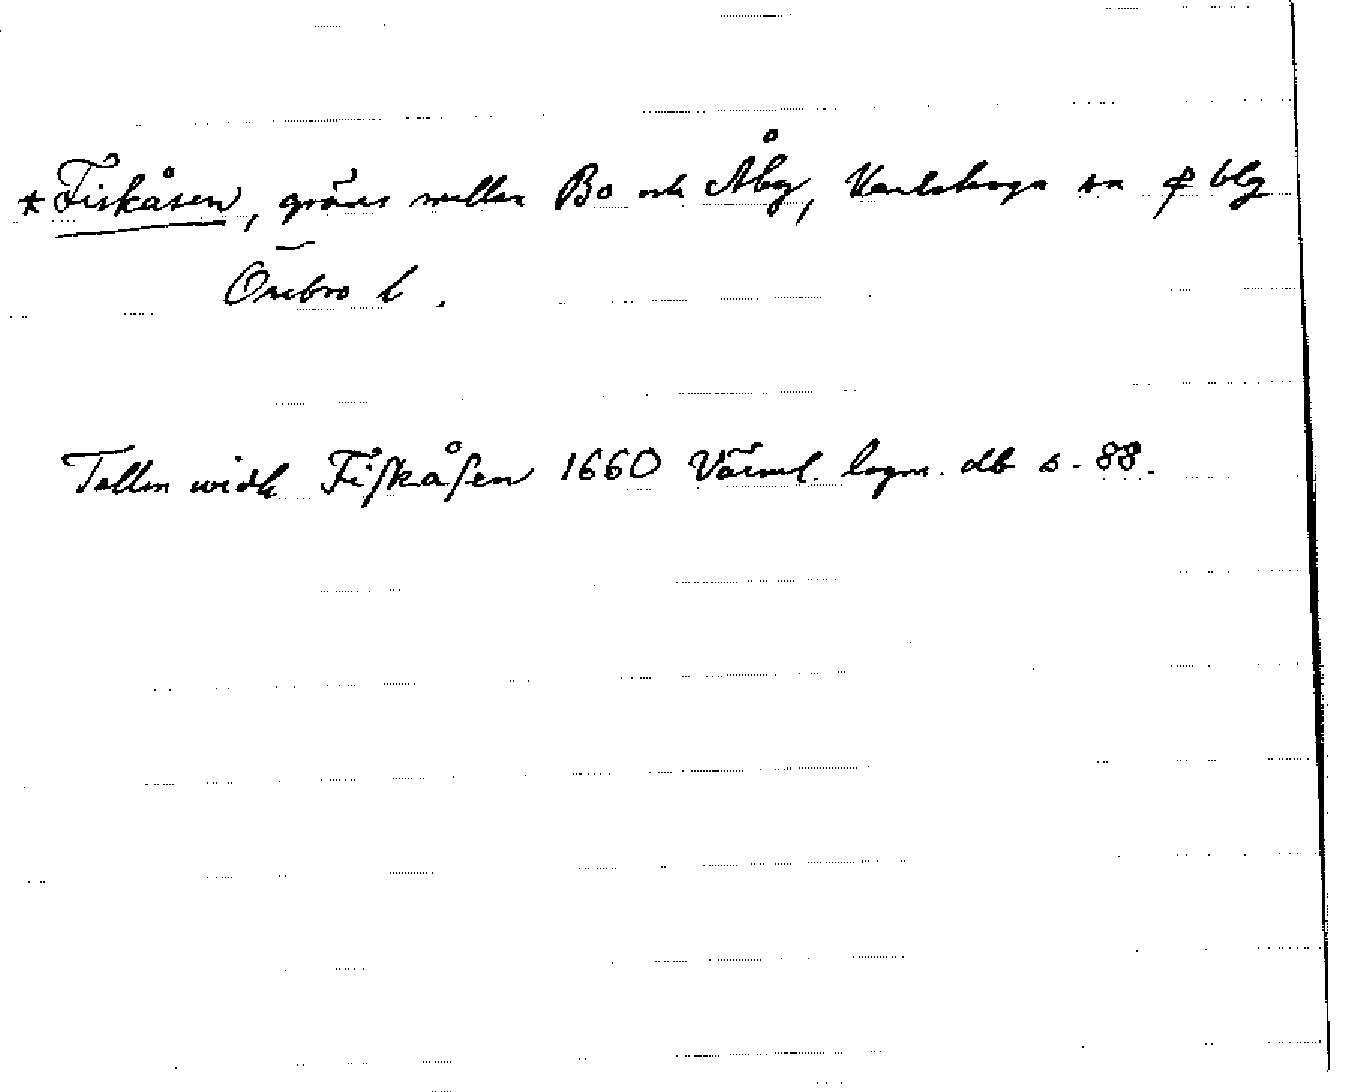 * Fiskåsen, gräns mellan Bo och Åby, Karlskoga sn
Örebro l.
Tallen widh Fiſkåſen 1660 Värml. lagm. db s. 88.